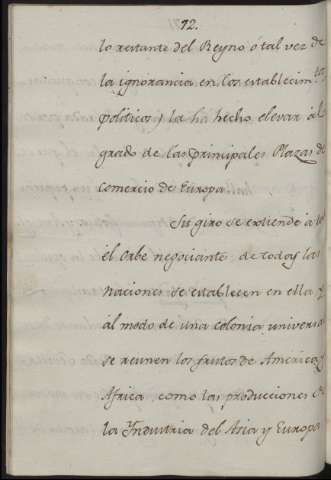 12.
lo restante del Reyno ó tal vez de
la ignorancia en los establecim.tos
politicos) la ha hecho elevar al
grado de las principales Plazas de
comercio de Europa
Su giro se extiende à
el Orbe negociante de todas las
naciones se establecen en ella y
al modo de una colonia universal
se reunen los frutos de America y
Africa, como las producciones de
la Yndustria del Asia y Europa